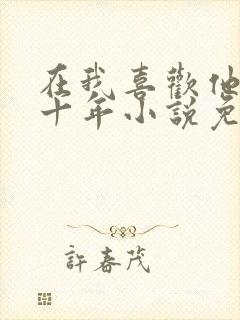 在我喜歡他
十年小說免
許春茂